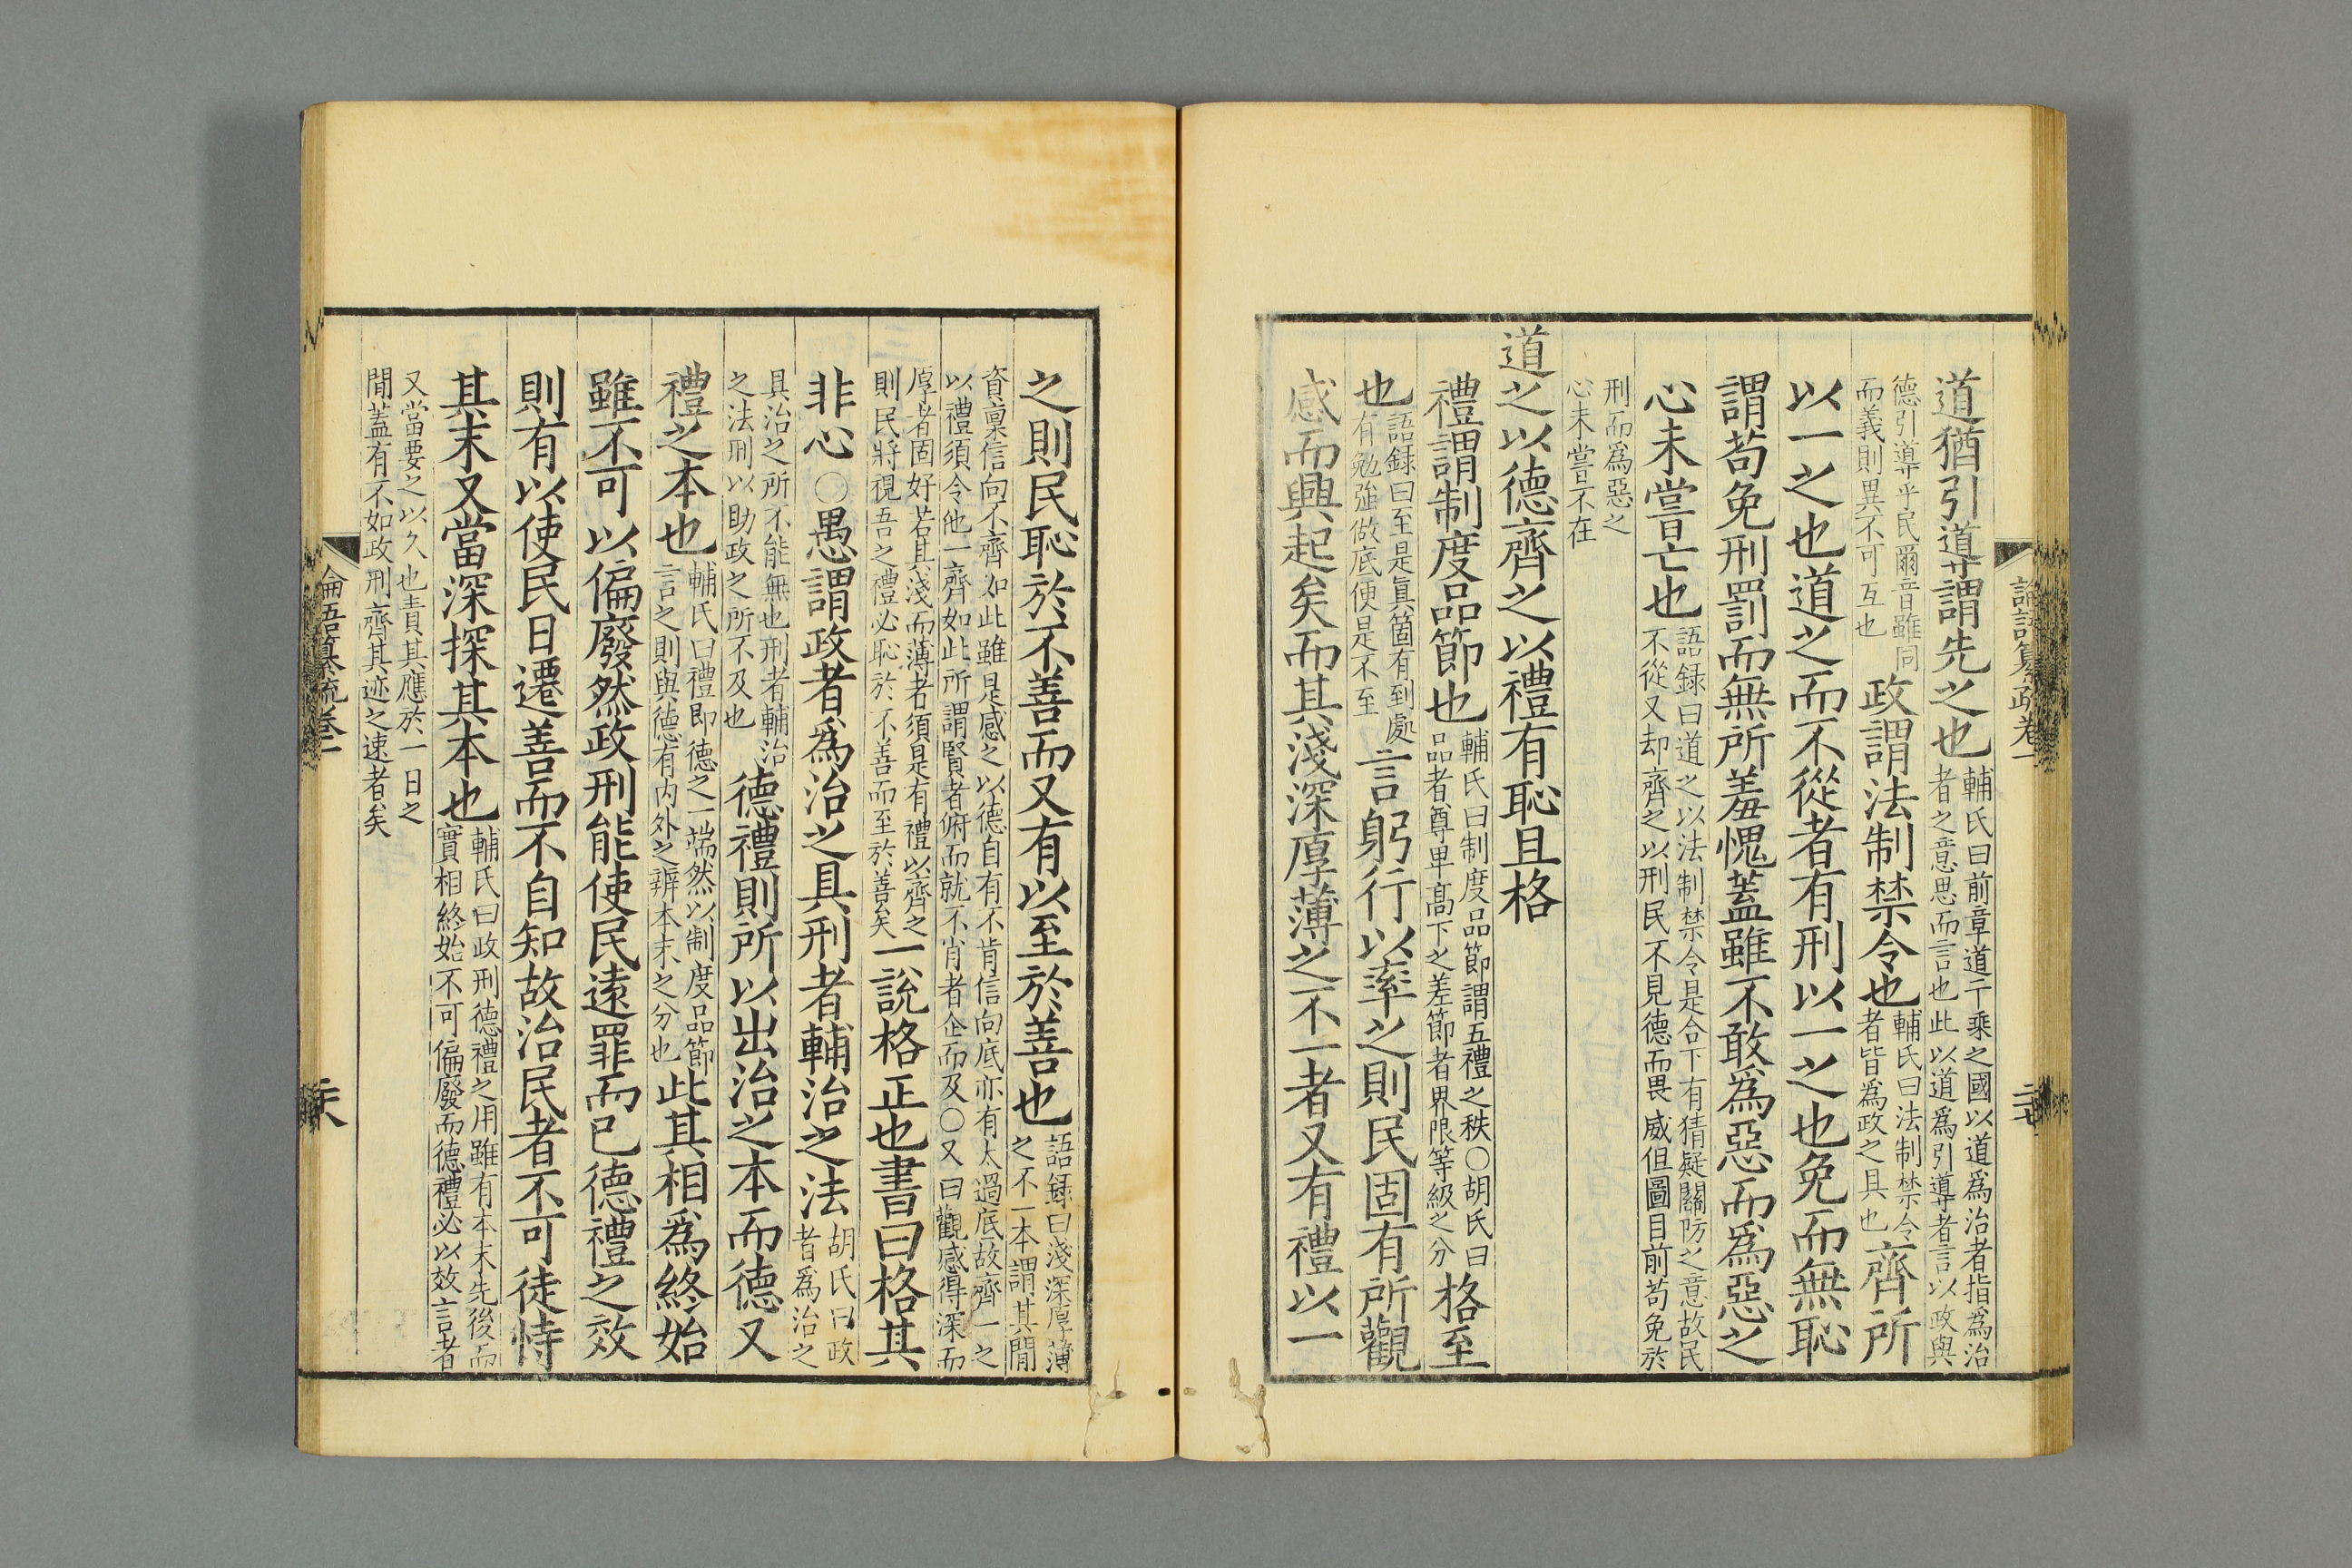 道猶引導謂先之也輔氏曰前章道千乘之國以道爲治者指爲治者之意思而言也此以道爲引導者言以政與
德引導乎民爾音雖同而義則異不可互也政謂法制禁令也輔氏曰法制禁令者皆爲政之具也齊所
以一之也道之而不從者有刑以一之也免而無恥
謂苟免刑罰而無所羞愧蓋雖不敢爲惡而爲惡之
心未嘗亡也語録曰道之以法制禁令是合下有猜疑關防之意故民不從又却齊之以刑民不見德而畏威但圖目前苟免於
刑而爲惡之心未嘗不在
道之以德齊之以禮有恥且格
禮謂制度品節也輔氏曰制度品節謂五禮之秩○胡氏曰品者尊卑高下之差節者界限等級之分格至
也語録曰至是眞箇有到處有勉強做底便是不至言躬行以率之則民固有所觀
感而興起矣而其淺深厚薄之不一者又有禮以一
論語纂疏卷一
二十七
之則民恥於不善而又有以至於善也語録曰淺深厚薄之不一本謂其閒
資稟信向不齊如此雖是感之以德自有不肯信向底亦有太過底故齊一之以禮須令他一齊如此所謂賢者俯而就不肖者企而及○又曰觀感得深而
厚者固好若其淺而薄者須是有禮以齊之則民將視吾之禮必恥於不善而至於善矣一說格正也書曰格其
非心○愚謂政者爲治之具刑者輔治之法胡氏曰政者爲治之
具治之所不能無也刑者輔治之法刑以助政之所不及也德禮則所以出治之本而德又
禮之本也輔氏曰禮即德之一端然以制度品節言之則與德有内外之辨本末之分也此其相爲終始
雖不可以偏廢然政刑能使民遠罪而已德禮之效
則有以使民日遷善而不自知故治民者不可徒恃
其末又當深探其本也輔氏曰政刑德禮之用雖有本末先後而實相終始不可偏廢而德禮必以效言者
又當要之以久也責其應於一日之閒蓋有不如政刑齊其迹之速者矣
論語纂疏卷一
二十八